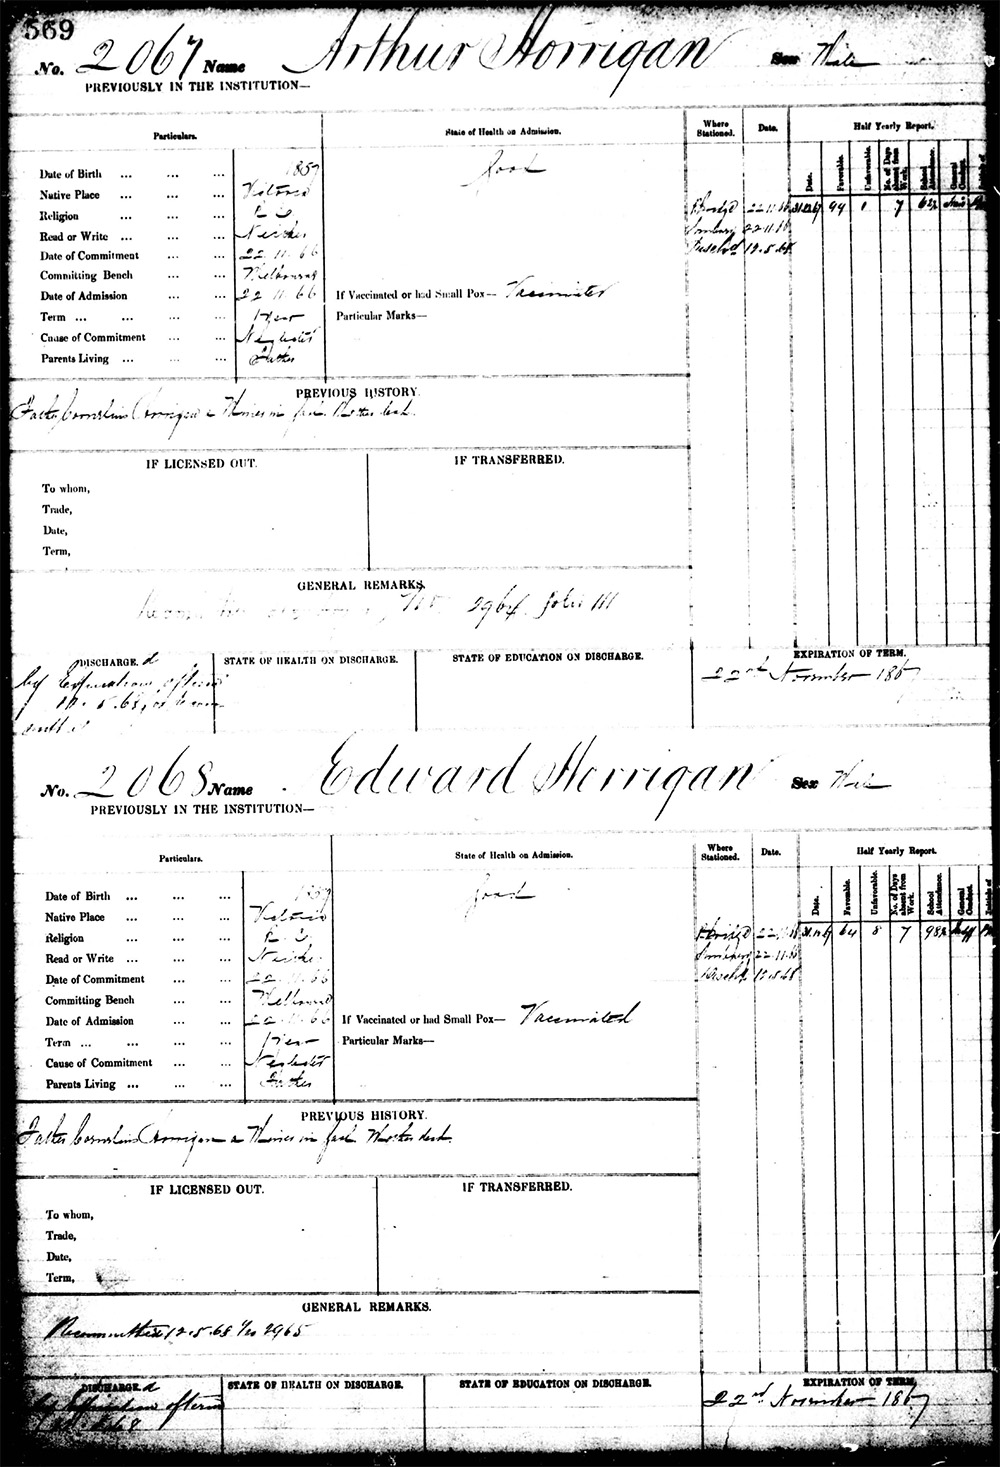 569
No. 2067 Name Arthur Horrigan Sex Male
PREVIOUSLY IN THE INSTITUTION—
Particulars. State of Health on Admission. Where Stationed. Date. Half Yearly Report.
Date. Favorable. Unfavorable. No. of Days absent from Work. School Attendance. General Conduct.
Date of Birth ... ... ... 1857 Good
Native Place ... ... ... Victoria
Religion ... ... R C 22.11.66 31.12.67 94 1 7
Read or Write ... ... ... Neither 22.11.66
Date of Commitment ... ... 22.11.66 12.5.68
Committing Bench ... ... Melbourne
Date of Admission ... ... 22.11.66 If Vaccinated or had Small Pox— Vaccinated
Term ... ... ... ... 1 Year Particular Marks—
Cause of Commitment ... ... Neglected
Parents Living ... ... ... Father
PREVIOUS HISTORY.
Father Cornelius Horrigan a in gaol Mother dead.
IF LICENSED OUT. IF TRANSFERRED.
To whom,
Trade,
Date,
Term,
GENERAL REMARKS.
No 2964 folio 111
DISCHARGE.d STATE OF HEALTH ON DISCHARGE. STATE OF EDUCATION ON DISCHARGE. EXPIRATION OF TERM.
by Expiration of term 22nd November 1867
.5.68
No. 2068 Name Edward Horrigan Sex Male
PREVIOUSLY IN THE INSTITUTION—
Particulars. State of Health on Admission. Where Stationed. Date. Half Yearly Report.
Date. Favorable. Unfavorable. No. of Days absent from Work. School Attendance. General Conduct.
Date of Birth ... ... ... Good
Native Place ... ... ... Victoria
Religion ... ... ... R. C. 31.12.67 64 8 7
Read or Write ... ... ... Neither 22.11.66
Date of Commitment ... ... 22.11.66 12.5.68
Committing Bench ... ... Melbourne
Date of Admission ... ... 22.11.66 If Vaccinated or had Small Pox— Vaccinated
Term ... ... ... ... 1 Year Particular Marks—
Cause of Commitment ... ... Neglected
Parents Living ... ... ... Father
PREVIOUS HISTORY.
Father Cornelius Horrigan a in gaol Mother dead.
IF LICENSED OUT. IF TRANSFERRED.
To whom,
Trade,
Date,
Term,
GENERAL REMARKS.
Recommitted 12.5.68 No 2965
DISCHARGE.d STATE OF HEALTH ON DISCHARGE. STATE OF EDUCATION ON DISCHARGE. EXPIRATION OF TERM.
by Expiration of term 22nd November 1867